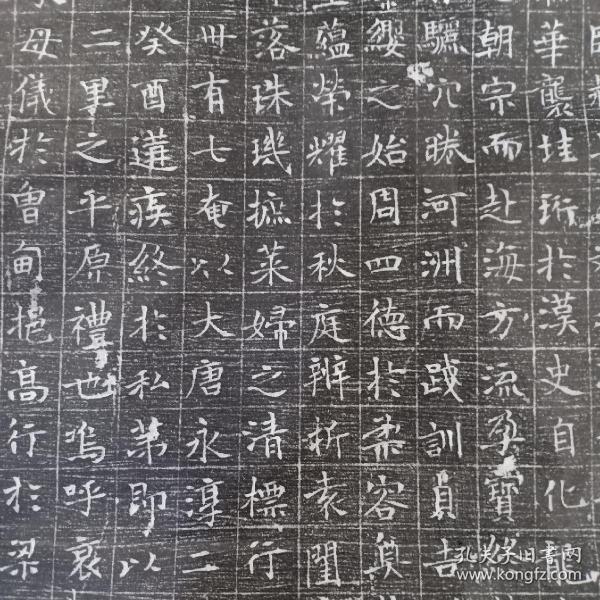 華襲珪珩於漢史自化
朝宗而赴海方流孕寶
驪穴睇河洲而踐訓貞吉
纓之始周四德於柔容
蘊榮耀於秋庭辯析袁閨
落珠璣摭萊婦之清標行
卅有七奄以大唐永淳二
癸酉遘疾終於私第即以
二里之平原禮也嗚呼哀
母儀於魯甸挹高行於梁
孔夫子旧书网
www.kongfz.com